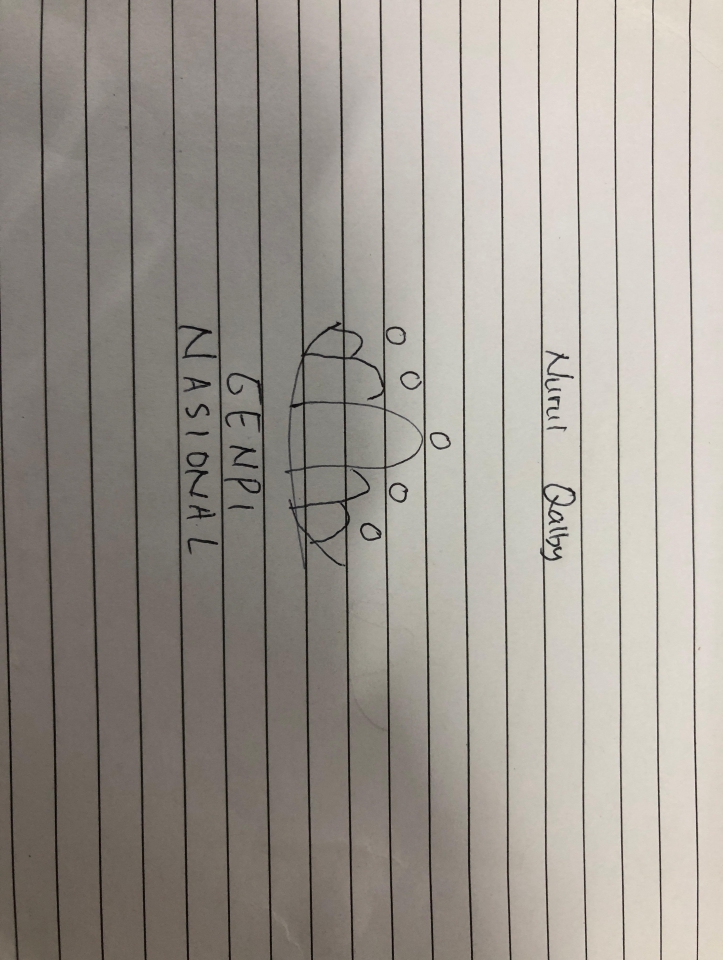 Nurul Qalby
GENPI
NASIONAL